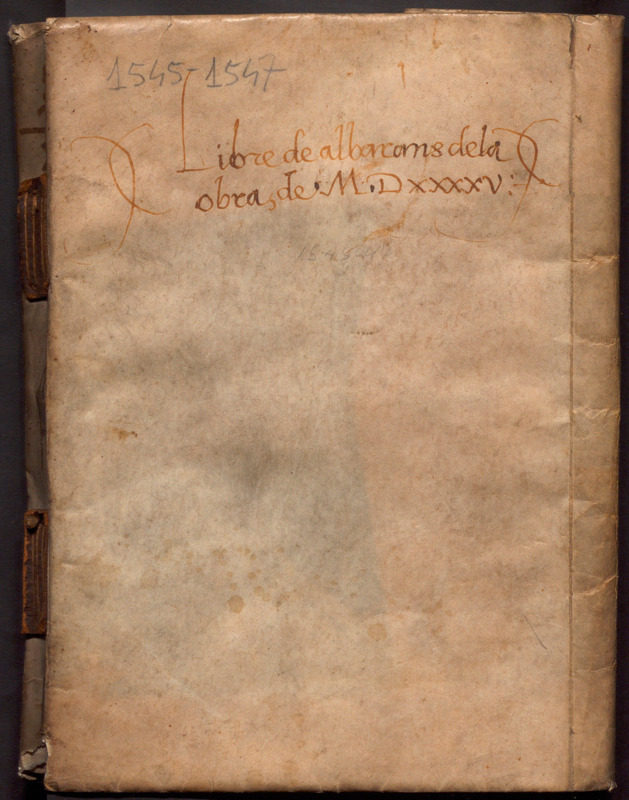 1545-1547
Libre de albarans dela
obra, de M.DXXXXV: